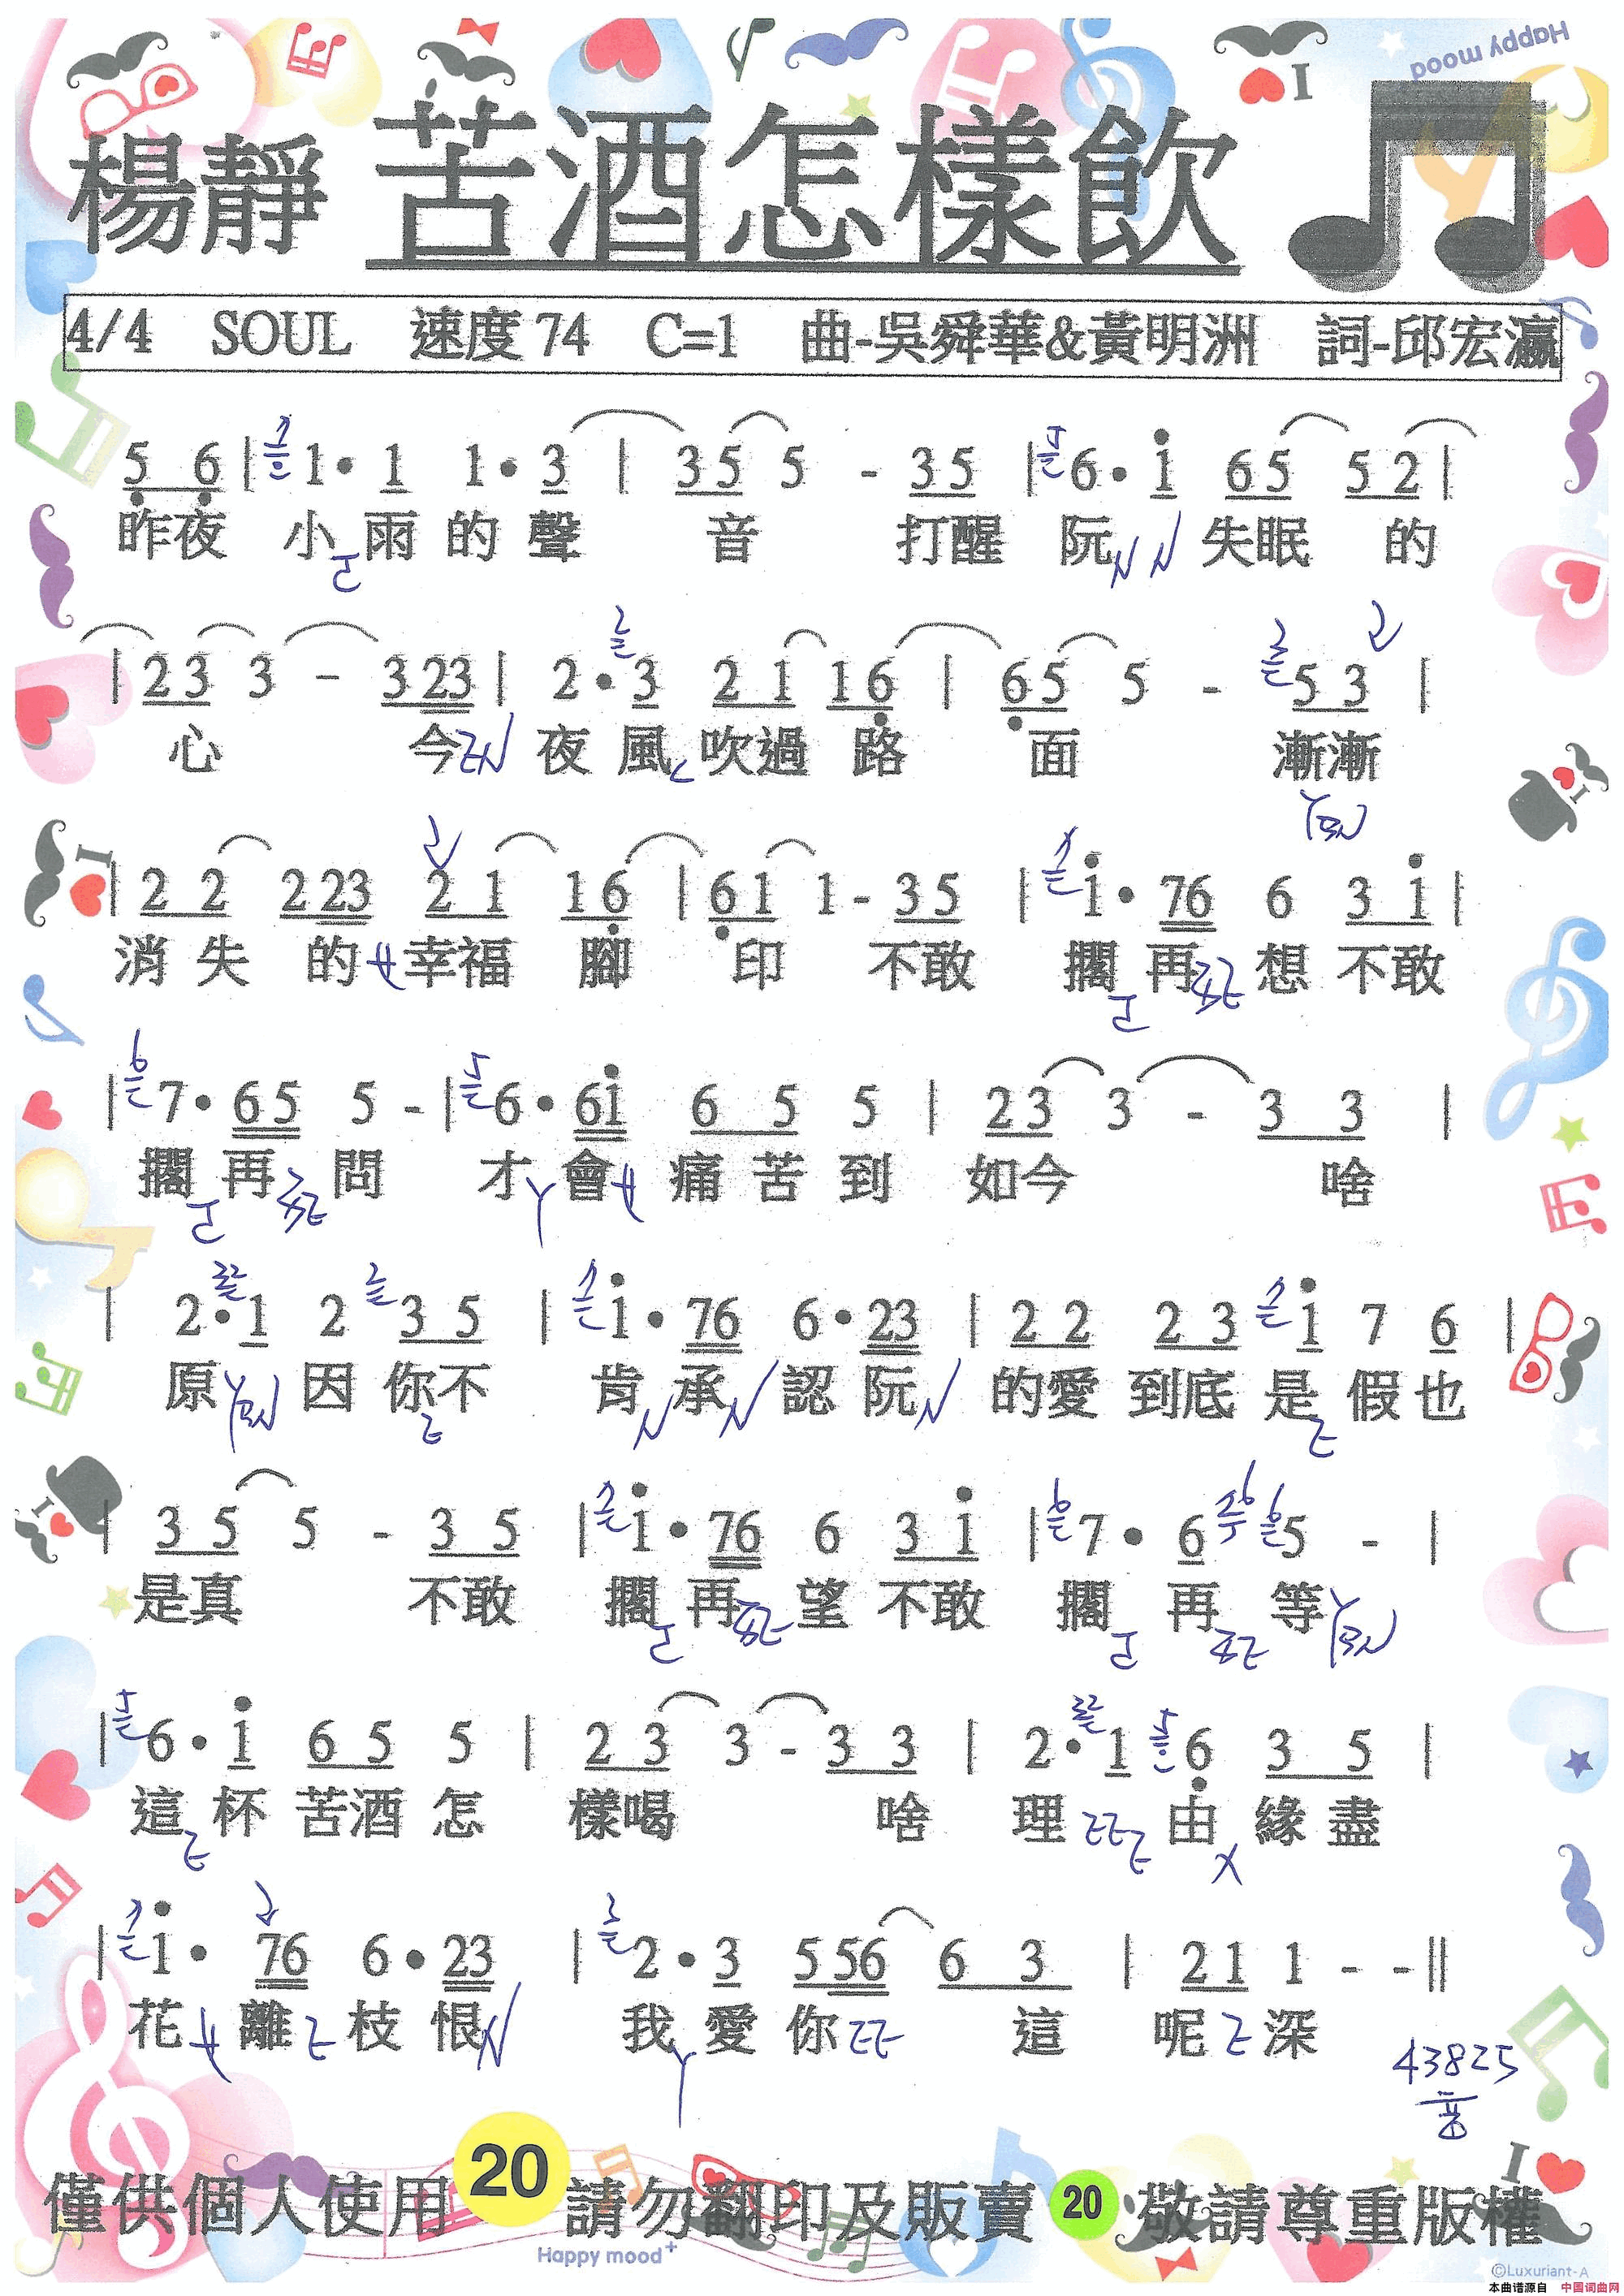 Happy mood
I
楊靜 苦酒怎樣飲
4/4 SOUL 速度74 C=1 曲-吳舜華&黃明洲 詞-邱宏瀛
5 6 | 1· 1 1· 3 | 35 5 - 35 | 6· i 65 52 |
昨夜 小雨的聲 音 打醒 阮 失眠 的
| 23 3 - 323 | 2· 3 2 1 16 | 65 5 - 53 |
心 今 夜風吹過 路 面 漸漸
| 2 2 223 2 1 16 | 61 1 - 35 | i· 76 6 3 i |
消失 的 幸福 腳 印 不敢 擱再 想 不敢
| 7· 65 5 - | 6· 6i 6 5 5 | 23 3 - 3 3 |
擱再 問 才 會 痛苦到 如今 啥
| 2· 1 2 3 5 | i· 76 6· 23 | 2 2 2 3 i 7 6 |
原 因 你不 肯承 認阮 的愛 到底 是 假也
| 3 5 5 - 3 5 | i· 76 6 3 i | 7· 6 5 - |
是真 不敢 擱再 望 不敢 擱 再 等
| 6· i 6 5 5 | 2 3 3 - 3 3 | 2· 1 6 3 5 |
這杯 苦酒 怎 樣喝 啥 理 由 緣盡
| i· 76 6· 23 | 2· 3 556 6 3 | 21 1 - - ‖
花 離 枝 恨 我愛你 這 呢 深
43825
音
僅供個人使用 20 請勿翻印及販賣 20 敬請尊重版權
I
Happy mood+
©Luxuriant-A
本曲谱源自 中国词曲网